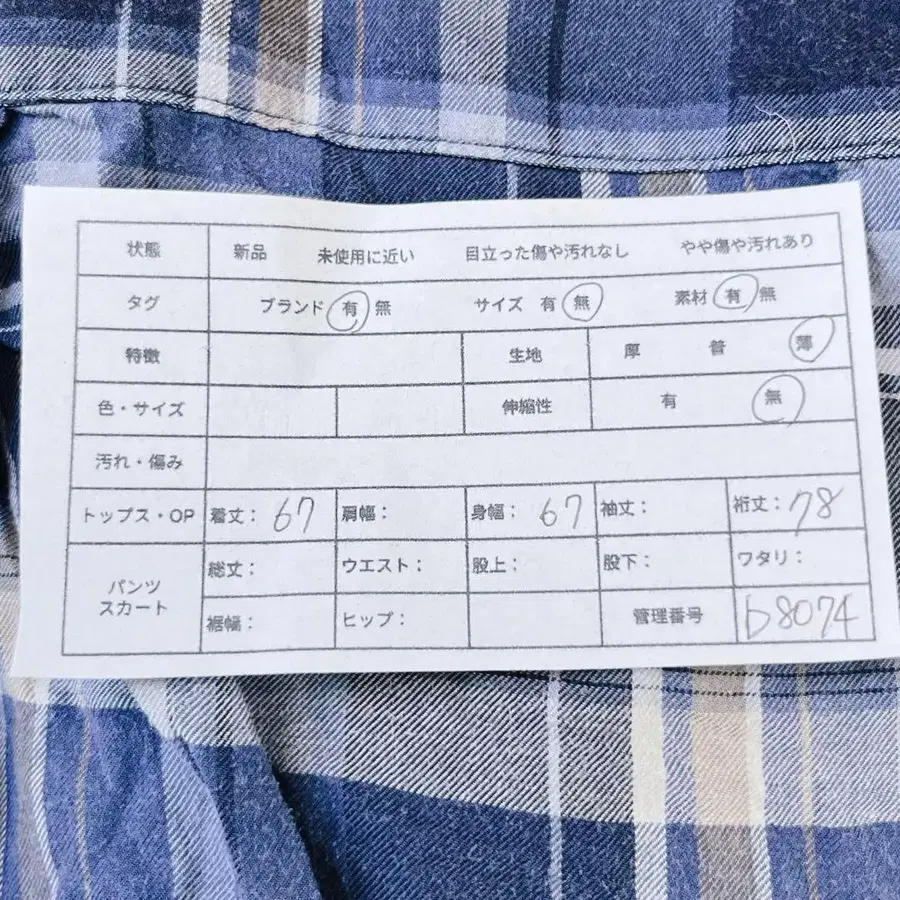 状態 新品 未使用に近い 目立った傷や汚れなし やや傷や汚れあり
タグ ブランド 有 無 サイズ 有 無 素材 有 無
特徴 生地 厚 普 薄
色・サイズ 伸縮性 有 無
汚れ・傷み
トップス・OP 着丈: 67 肩幅: 身幅: 67 袖丈: 裄丈: 78
パンツ スカート 総丈: ウエスト: 股上: 股下: ワタリ:
裾幅: ヒップ: 管理番号 b8074